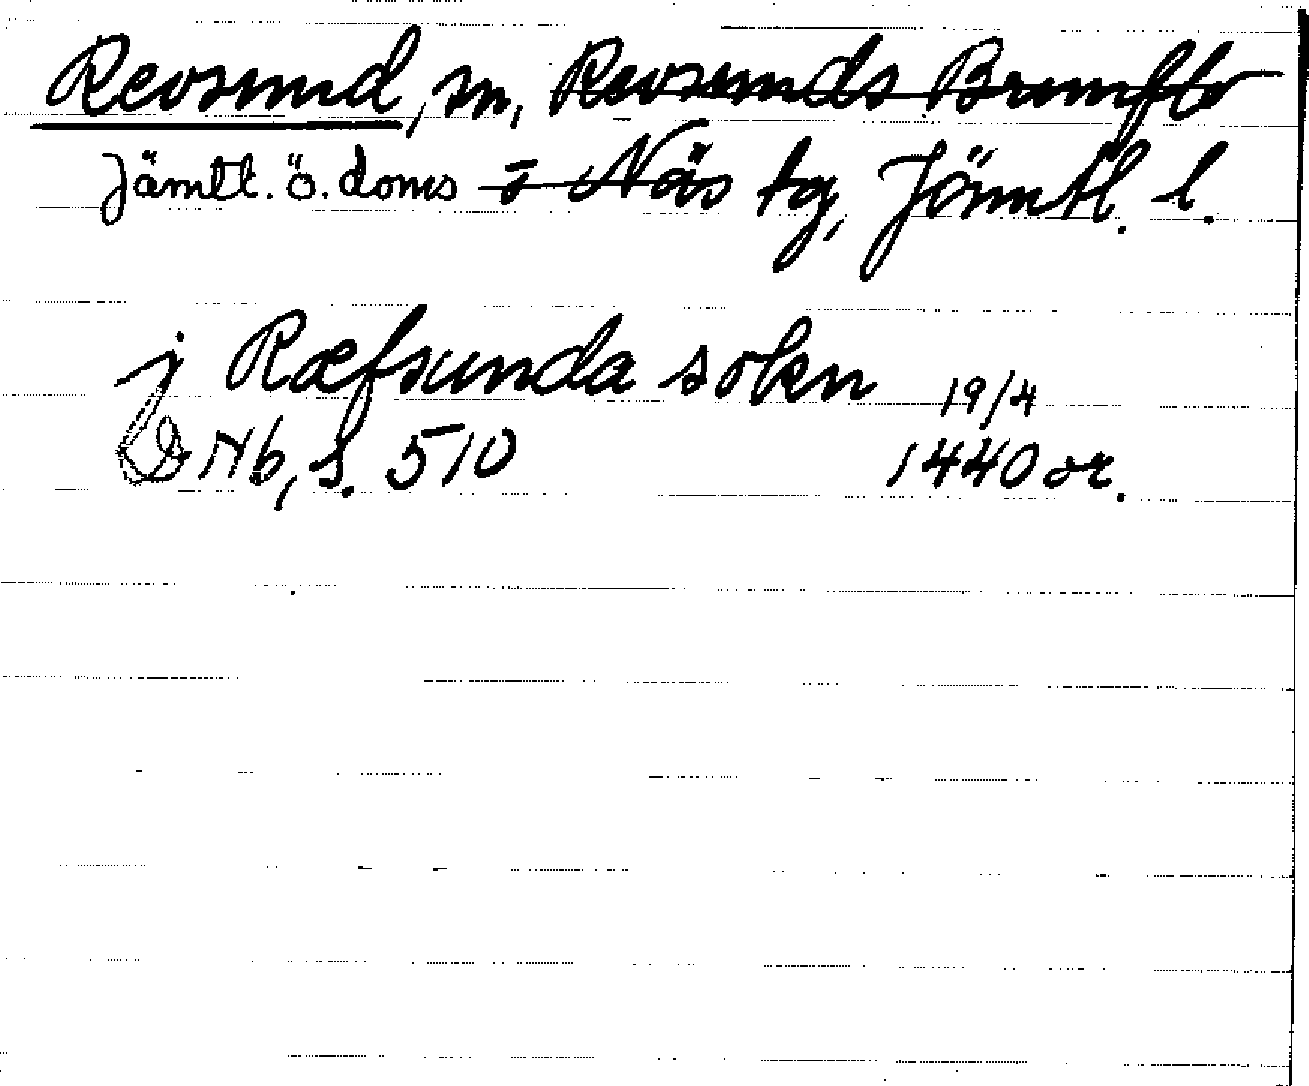 Revsund, sn, Revsunds Brunflo
Jämtl. ö. doms o Näs tg, Jämtl. l.
j Ræfsunda sokn 19/4
Nb, s. 510 1440 or.